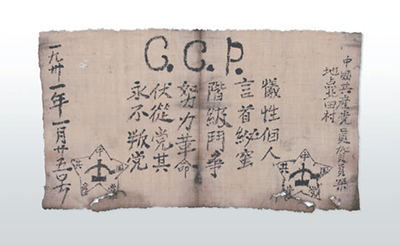 C.C.P.
中國共産党員
地点北田村
犧牲個人
言首秘蜜
階級鬥争
努力革命
伏從党其
永不叛党
一九卅一年一月廿五号